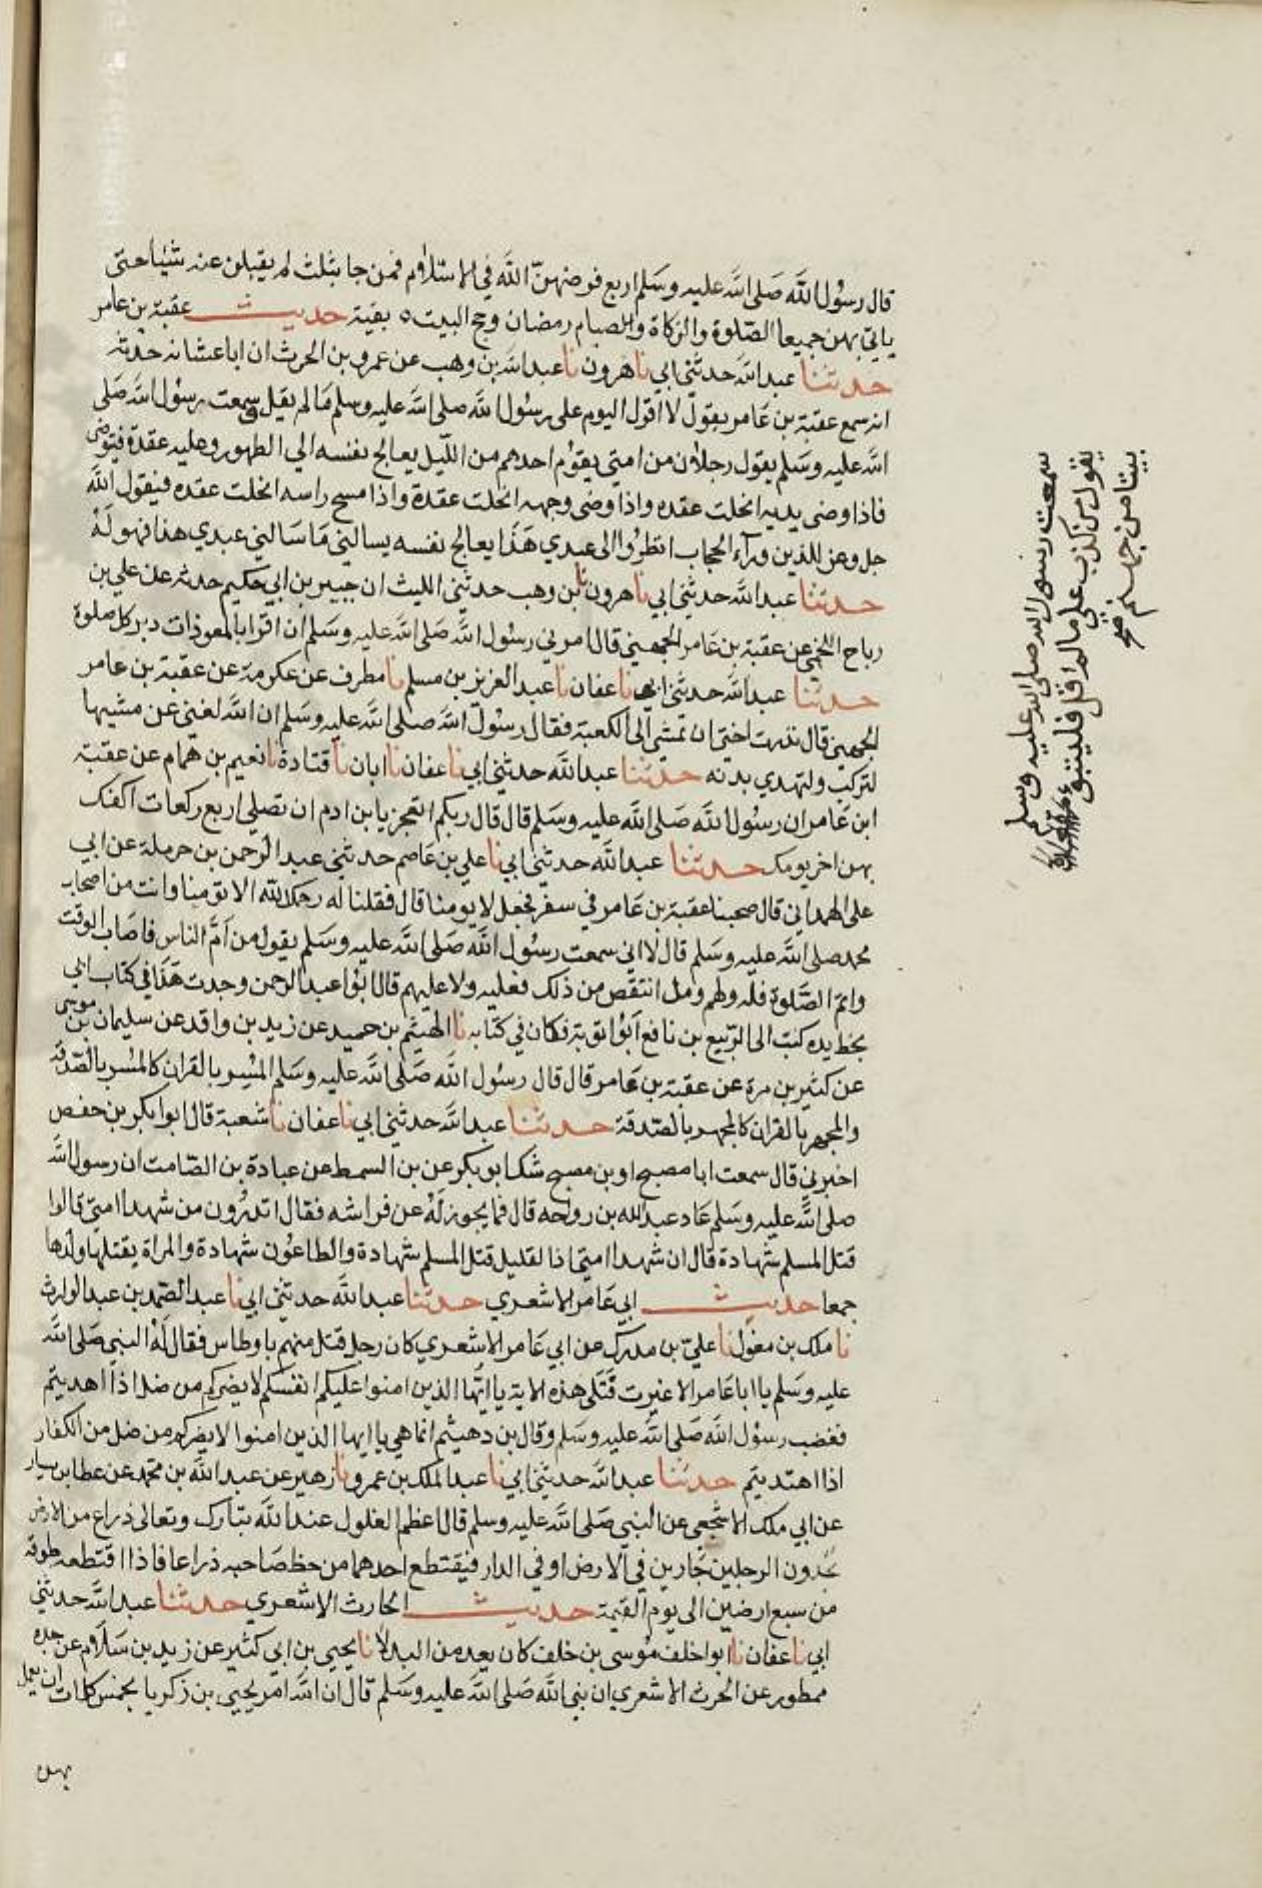 قال رسول الله صلى الله عليه وسلم اربع فرضهن الله في الاسلام فمن جا بثلث لم يقبلن عنه شيئا حتى
ياتي بهن جميعا الصلوة والزكاة والصيام رمضان وحج البيت ٥ بقية حديث عقبة بن عامر
حدثنا عبد الله حدثني ابي نا هرون نا عبد الله بن وهب عن عمرو بن الحرث ان ابا عشانه حدثه
انه سمع عقبة بن عامر يقول لا اقول اليوم على رسول الله صلى الله عليه وسلم ما لم يقل سمعت رسول الله صلى
الله عليه وسلم يقول رجلان من امتي يقوم احدهم من الليل يعالج نفسه الي الطهور وعليه عقدة فيتوضى
فاذا وضى يديه انحلت عقده واذا وضى وجهه انحلت عقدة واذا مسح راسه انحلت عقده فيقول الله
جل وعز للذين وراء الحجاب انظروا الى عبدي هذا يعالج نفسه يسالني ما سالني عبدي هذا فهو له
حدثنا عبد الله حدثني ابي نا هرون نا بن وهب حدثني الليث ان جبير بن ابي حكيم حدثه عن علي بن
رباح اللخمي عن عقبة بن عامر الجهني قال امرني رسول الله صلى الله عليه وسلم ان اقرا بالمعوذات دبر كل صلوة
حدثنا عبد الله حدثني ابي نا عفان نا عبد العزيز بن مسلم نا مطرف عن عكرمة عن عقبة بن عامر
الجهني قال نذرت اختي ان تمشي الى الكعبة فقال رسول الله صلى الله عليه وسلم ان الله لغني عن مشيها
لتركب ولتهدي بدنه حدثنا عبد الله حدثني ابي نا عفان نا ابان نا قتادة نا نعيم بن همام عن عقبة
ابن عامر ان رسول الله صلى الله عليه وسلم قال قال ربكم اتعجز يا بن ادم ان تصلي اربع ركعات اكفك
بهن اخر يومك حدثنا عبد الله حدثني ابي نا علي بن عاصم حدثني عبد الرحمن بن حرملة عن ابي
على الهمداني قال صحبنا عقبة بن عامر في سفر فجعل لا يومنا قال فقلنا له رحمك الله الا تومنا وانت من اصحاب
محمد صلى الله عليه وسلم قال لا اني سمعت رسول الله صلى الله عليه وسلم يقول من ام الناس فاصاب الوقت
واتم الصلوة فله ولهم ومن انتقص من ذلك فعليه ولا عليهم قال ابوا عبد الرحمن وجدت هذا في كتاب ابي
بخط يده كتب الى الربيع بن نافع ابوا توبة فكان في كتابه نا الهيثم بن حميد عن زيد بن واقد عن سليمان بن موسى
عن كثير بن مرة عن عقبة بن عامر قال قال رسول الله صلى الله عليه وسلم المسر بالقران كالمسر بالصدقة
والمجهر بالقران كالمجهر بالصدقة حدثنا عبد الله حدثني ابي نا عفان نا شعبة قال ابوا بكر بن حفص
اخبرني قال سمعت ابا مصبح او بن مصبح شك ابو بكر عن بن السمط عن عبادة بن الصامت ان رسول الله
صلى الله عليه وسلم عاد عبد الله بن رواحه قال فما يجوز له عن فراشه فقال اتدرون من شهدا امتي قالوا
قتل المسلم شهادة قال ان شهدا امتي اذا لقليل قتل المسلم شهادة والطاعون شهادة والمراة يقتلها ولدها
جمعا حديث ابي عامر الاشعري حدثنا عبد الله حدثني ابي نا عبد الصمد بن عبد الوارث
نا ملك بن مغول نا علي بن مدرك عن ابي عامر الاشعري كان رجل قتل منهم باوطاس فقال له النبي صلى الله
عليه وسلم يا ابا عامر الا غيرت فتلى هذه الاية يا ايها الذين امنوا عليكم انفسكم لا يضركم من ضل اذا اهديتم
فغضب رسول الله صلى الله عليه وسلم وقال بن دهيثم انما هي يا ايها الذين امنوا لا يضركم من ضل من الكفار
اذا اهتديتم حدثنا عبد الله حدثني ابي نا عبد الملك بن عمرو نا زهير عن عبد الله بن محمد عن عطا بن يسار
عن ابي ملك الاشجعي عن النبي صلى الله عليه وسلم قال اعظم الغلول عند الله تبارك وتعالى ذراع من الارض
تجدون الرجلين جارين في الارض او في الدار فيقتطع احدهما من حظ صاحبه ذراعا فاذا اقتطعه طوقه
من سبع ارضين الى يوم القيمة حديث الحارث الاشعري حدثنا عبد الله حدثني
ابي نا عفان نا ابوا خلف موسى بن خلف كان يعد من البدلا نا يحيى بن ابي كثير عن زيد بن سلام عن جده
ممطور عن الحرث الاشعري ان نبي الله صلى الله عليه وسلم قال ان الله امر يحيى بن زكريا بخمس كلمات ان يعمل
بهن
سمعت رسول الله صلى الله عليه وسلم
يقول من كذب علي ما لم اقل فليتبوا
بيتا من جهنم صح